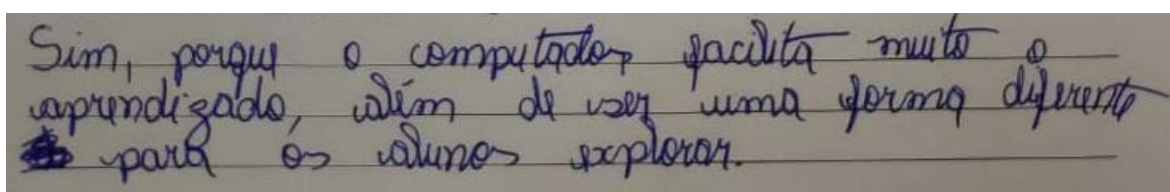 Sim, porque o computador facilita muito o
aprendizado, além de ser uma forma diferente
para os alunos explorar.